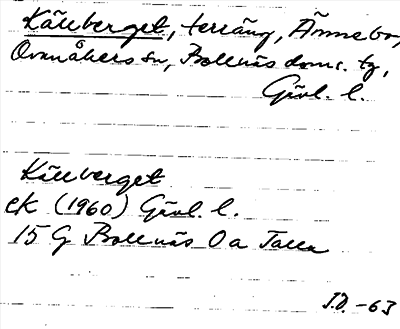 Källberget, terräng, Ännebo,
Ovanåkers sn, Bollnäs doms. tg,
Gävl. l.
Källberget
ek (1960) Gävl. l.
15 G Bollnäs 0 a Talla
I.D. -63